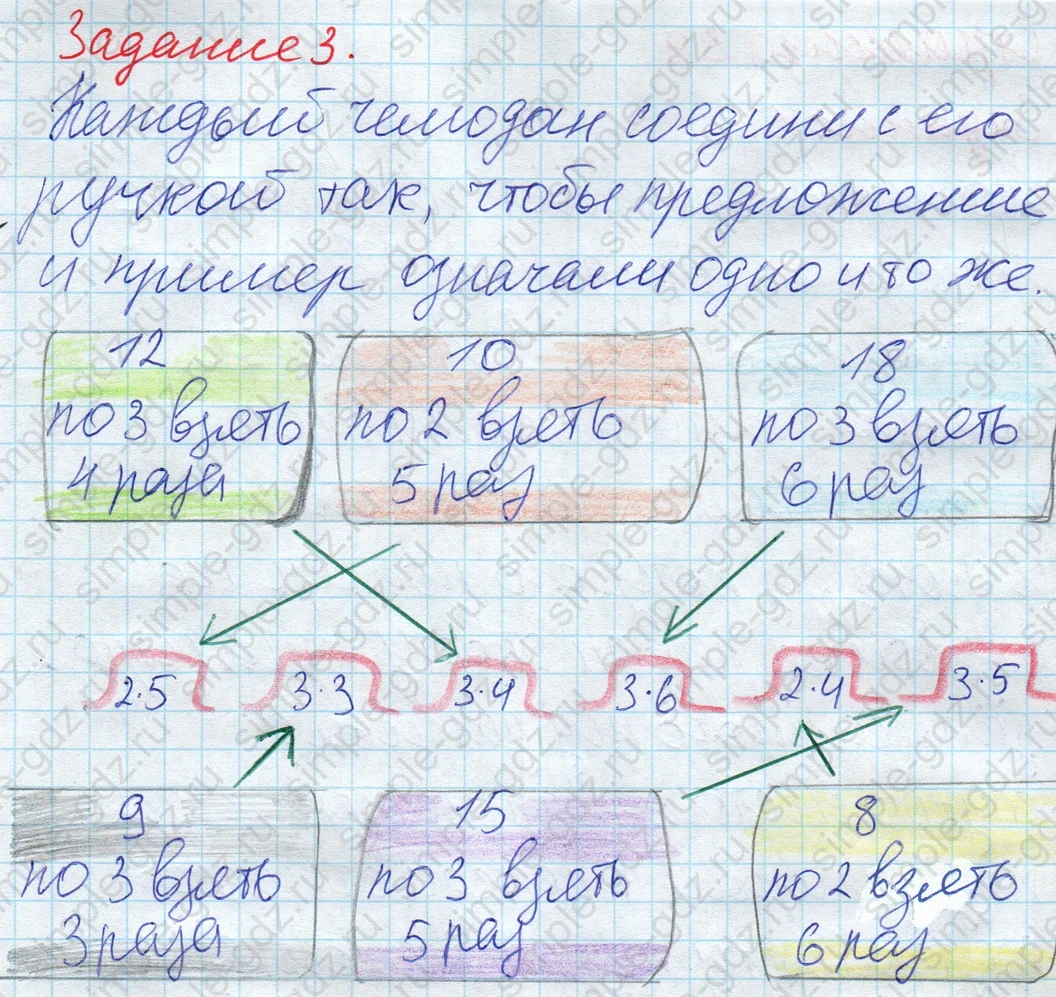 Задание 3.
Каждый чемодан соедини с его
ручкой так, чтобы предложение
и пример означали одно и то же.
12
по 3 взять
4 раза
10
по 2 взять
5 раз
18
по 3 взять
6 раз
2·5
3·3
3·4
3·6
2·4
3·5
9
по 3 взять
3 раза
15
по 3 взять
5 раз
8
по 2 взять
6 раз
simple-gdz.ru